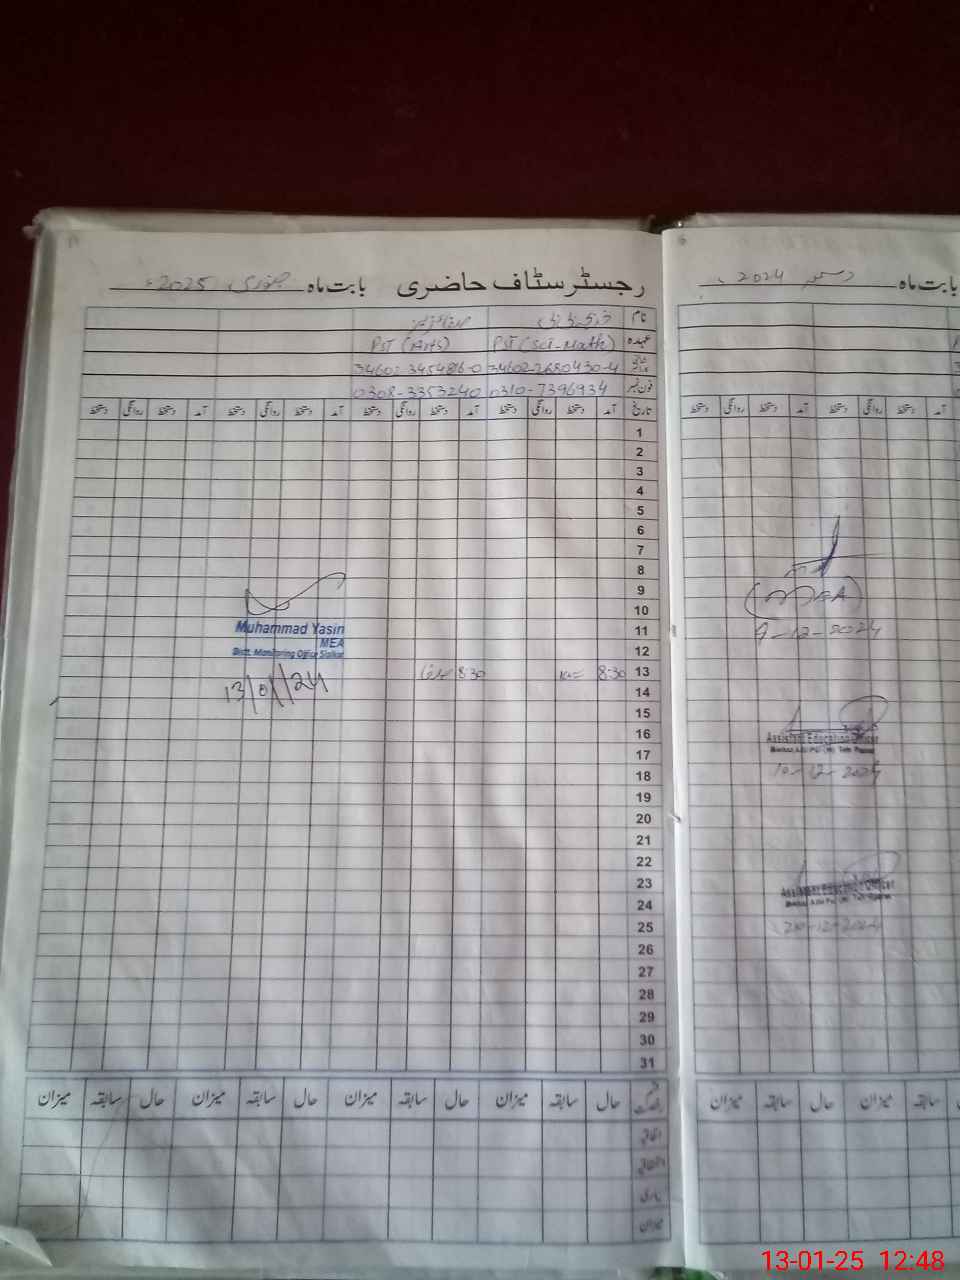 رجسٹر سٹاف حاضری بابت ماہ جنوری 2025ء
نام
عہدہ PST (Sci-Math) PST (Arts)
34602-2680430-4 34602-3454816-0
فون نمبر 0310-7396934 0308-3353240
تاریخ آمد دستخط روانگی دستخط آمد دستخط روانگی دستخط آمد دستخط روانگی دستخط آمد دستخط روانگی دستخط
1
2
3
4
5
6
7
8
9
10
11
12
13 8:30 8:30
14
15
16
17
18
19
20
21
22
23
24
25
26
27
28
29
30
31
Muhammad Yasin
MEA
Distt. Monitoring Office Sialkot
13/01/24
حال سابقہ میزان حال سابقہ میزان حال سابقہ میزان حال سابقہ میزان
اتفاقیہ
استحقاقیہ
بیماری
میزان
بابت ماہ دسمبر 2024ء
آمد دستخط روانگی دستخط آمد دستخط روانگی دستخط
(MEA)
9-12-2024
Assistant Education Officer
10-12-2024
Assistant Education Officer
20-12-2024
سابقہ میزان حال سابقہ میزان
13-01-25 12:48